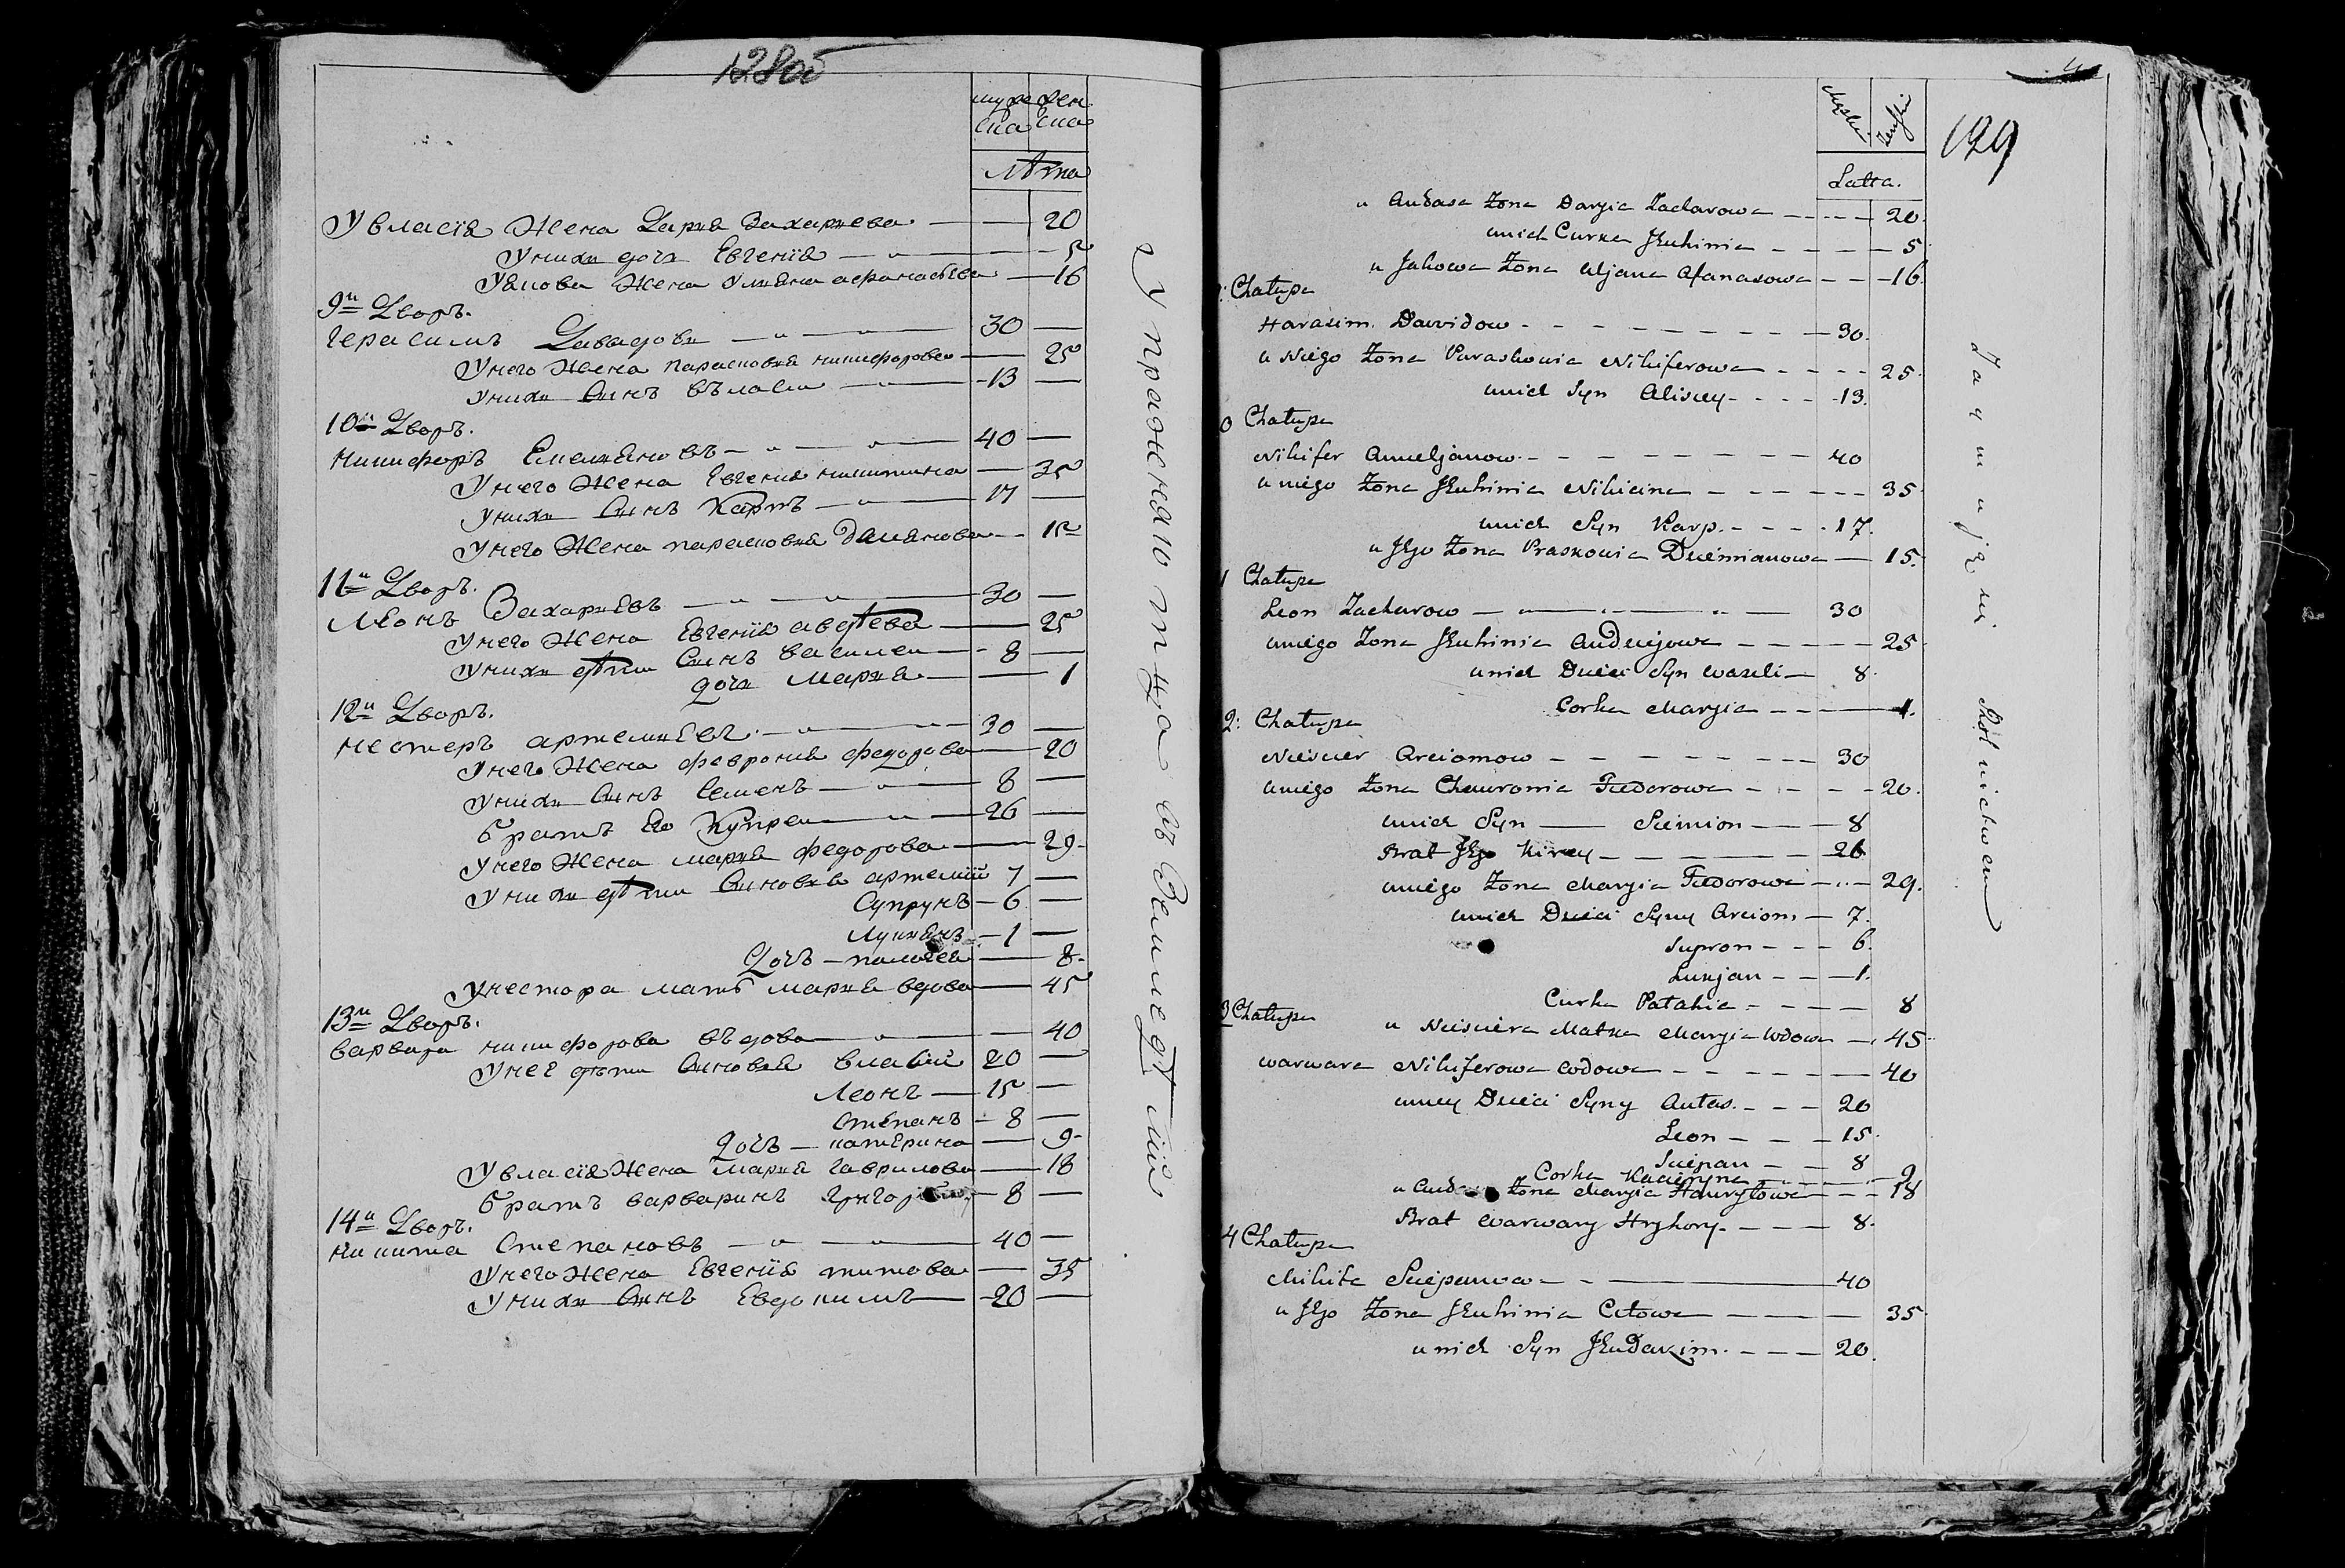 128об
муже жен
ска ска
лѣта
У власія Жена Дарья Захарьева — 20
У нихъ дочь Евгенія — 5
У якова Жена Ульяна афанасьева — 16
9й Дворъ.
Герасимъ Давыдовъ — 30 —
У него Жена парасковья никифорова — 25
У нихъ Сынъ — 13 —
10й Дворъ.
Никифоръ Емельяновъ — 40 —
У него Жена Евгенія никитина — 35
У нихъ Сынъ Карпъ — 17 —
У него Жена парасковья Демянова — 15
11й Дворъ.
Леонъ Захарьевъ — 30 —
У него Жена Евгенія авдѣева — 25
У нихъ дѣти Сынъ василеи — 8 —
дочь Марья — 1
12й Дворъ.
нестеръ артемьевъ — 30 —
У него Жена февронья федорова — 20
У нихъ Сынъ Семенъ — 8 —
братъ Его — 26 —
У него Жена марья федорова — 29
У нихъ дѣти Сыновья артемій 7 —
Супрунъ — 6 —
Лукьянъ — 1 —
Дочь — — 8
У нестора мать марья вдова — 45
13й Дворъ.
варвара никифорова въдова — 40
У нее дѣти Сыновья власій 20 —
Леонъ — 15 —
степанъ — 8 —
Дочь — катерина — 9
У власія Жена марья гаврилова — 18
братъ варваринъ — 8 —
14й Дворъ.
никита степановъ — 40 —
У него Жена Евгенія титова — 35
У нихъ Сынъ Евдокимъ — 20 —
Упражняютца въ Земледѣліи
129
Męski Żeński
Latta.
u Audasa Żona Daryia Zacharowa — 20
unich Curka JEuhinia — 5
u Jakowa Żona Uljana Afanasowa — 16
Chatupa
Harasim Dawidow — 30.
u Niego Żona Paraskowia Nikiferowa — 25
unich Syn Alisiey — 13.
0 Chatupa
Nikifer Amieljanow — 40
u niego Żona JEuhinia Nikicina — 35
unich Syn Karp. — 17.
u JEgo Żona Praskowia Dziemianowa — 15.
1 Chatupa
Leon Zacharow — 30
uniego Żona JEuhinia Audziejowa — 25
unich Dzieci Syn Wasili — 8.
Corka Maryia — 1.
2: Chatupa
Niescier Arciomow — 30
uniego Żona Chauronia Fiedorowa — 20.
unich Syn — Siemion — 8
Brat JEgo Kirey — 26
uniego Żona Maryia Fiedorowa — 29.
unich Dzieci Syny Arciom — 7.
Supron — 6.
Lukjan — 1.
Curka Patahia — 8
u Niesciera Matka Maryia Wdowa — 45
3 Chatupa
Warwara Nikiferowa Wdowa — 40
uniey Dzieci Syny Autas. — 20
Leon — 15.
Sciepan — 8
Corka Kacieryna — 9
u Żona Maryia Hawryłowa — 18
Brat Warwary Hryhory. — 8.
4 Chatupa
Mikita Sciepanow — 40
u JEgo Żona JEuhinia Citowa — 35
unich Syn JEudakim. — 20.